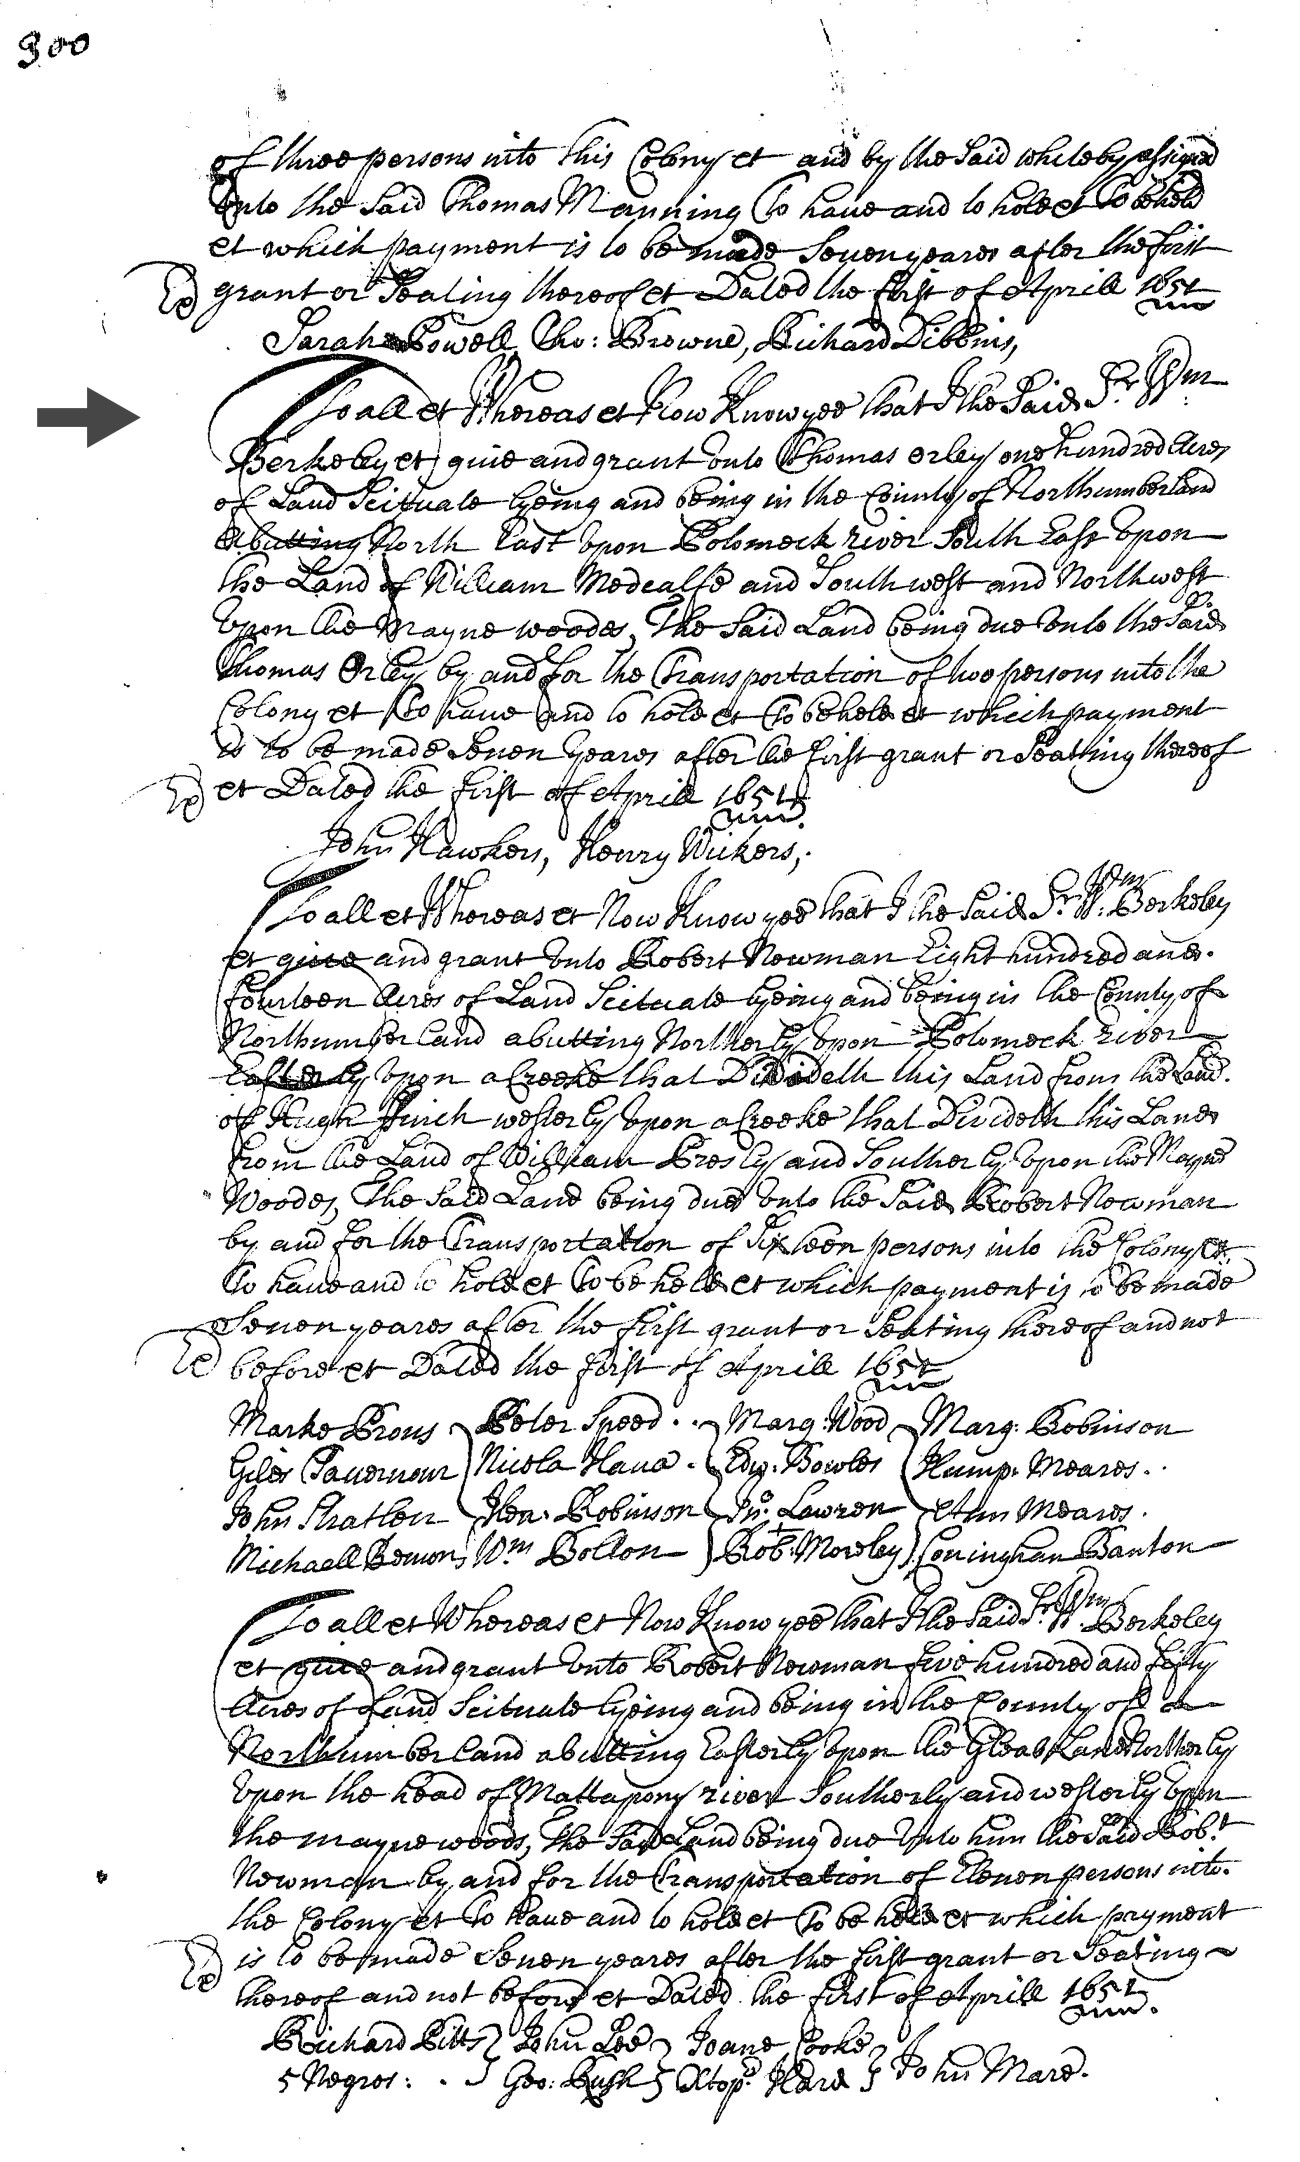 300
of three persons into this Colony et and by the Said whiteby assigned
unto the Said Thomas Manning To haue and to hold et To be held
et which payment is to be made Seuen yeares after the first
grant or Seating thereof et Dated the first of Aprill 1651
Sarah Powell, Tho: Browne, Richard Dibbins,
To all et Whereas et Now Know yee that I the Said Sr. Wm
Berkeley et giue and grant unto Thomas Orley one hundred Acres
of Land Scituate lyeing and being in the County of Northumberland
abutting North East upon Potomeck river South East upon
the Land of William Medcalfe and Southwest and Northwest
upon the Mayne woodes, The Said Land being due unto the Said
Thomas Orley by and for the Transportation of two persons into the
Colony et To haue and to hold et To be held et which payment
is to be made Seuen yeares after the first grant or Seating thereof
et Dated the first of Aprill 1651
John Hawkers, Henry Wickers,
To all et Whereas et Now Know yee that I the Said Sr. Wm Berkeley
et giue and grant unto Robert Newman Eight hundred and
fourteen Acres of Land Scituate lyeing and being in the County of
Northumberland abutting Northerly upon Potomeck river
Easterly upon a Creeke that Divideth this Land from the Land
of Hugh westerly upon a Creeke that Divideth this Land
from the Land of William Presly and Southerly upon the Mayne
Woodes, The Said Land being due unto the Said Robert Newman
by and for the Transportation of Sixteen persons into the Colony et
To haue and to hold et To be held et which payment is to be made
Seuen yeares after the first grant or Seating thereof and not
before et Dated the first of Aprill 1651
Marke Prous Peter Speed Marg: Wood Marg: Robinson
Giles Tauernour Nicola Haua Edw: Bowles Hump: Meares
John Hen: Robinson Jno. Lawren Ann Meares
Michaell Wm Bolton Rob: Morley Coninghan Banton
To all et Whereas et Now Know yee that I the Said Sr. Wm Berkeley
et giue and grant unto Robert Newman five hundred and fifty
Acres of Land Scituate lyeing and being in the County of
Northumberland abutting Easterly upon the Gleab Land Northerly
upon the head of Mattapony river Southerly and westerly upon
the mayne woods, The Said Land being due unto him the Said Robt
Newman by and for the Transportation of Eleuen persons into
the Colony et To haue and to hold et To be held et which payment
is to be made Seuen yeares after the first grant or Seating
thereof and not before et Dated the first of Aprill 1651
Richard Pitts John Lee Joane Cooke
5 Negros: Geo: Rush Xtopr Hard John Mare.